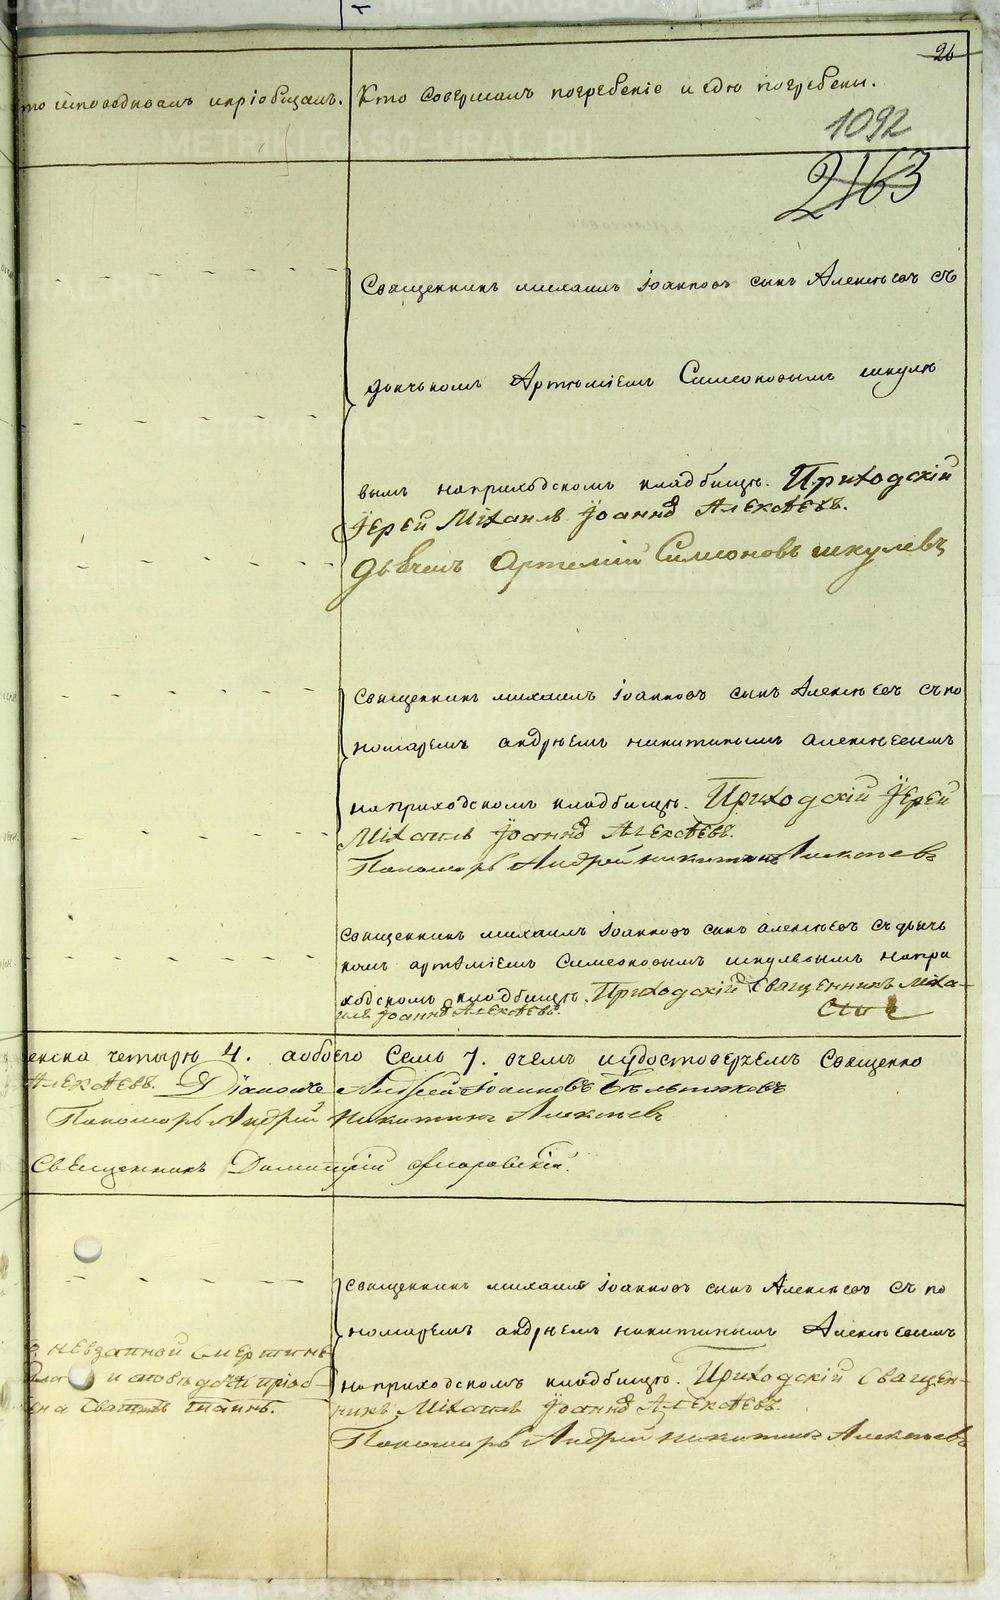 26
то исповѣдывалъ и пріобщалъ. Кто Совершалъ погребеніе и гдѣ погребены.
1092
2163
Священникъ михаилъ іоанновъ сынъ Алексѣевъ съ
дьячкомъ Артеміемъ Симеоновымъ шкуле
вымъ наприходскомъ кладбищѣ. Приходскій
Іерей Міхаилъ Іоанновъ Алексѣевъ.
дьячекъ Артемій Симионовъ шкулевъ
священникъ михаилъ іоанновъ сынъ Алексѣевъ съ по
номаремъ андрѣемъ никитинымъ алексѣевымъ
наприходскомъ кладбищѣ. Приходскій Іерей
Міхаилъ Іоанновъ Алексѣевъ.
Пономарь Андрей никитинъ Алексѣевъ
священникъ михаилъ іоанновъ сынъ алексѣевъ съ дьяч
комъ артѣміемъ Симеоновымъ шкулевымъ напри
ходскомъ кладбищѣ. Приходскій Священникъ Міха-
илъ Іоанновъ Алексѣевъ.
енска четыре 4. аобоего Семь 7. очемъ иудостоверяемъ Священно
Алексѣевъ. Діаконъ Андрей Іоанновъ
Пономарь Андрей никитинъ Алексѣевъ
Священникъ Димитрій
священникъ михаилъ іоанновъ сынъ Алексѣевъ съ по
номаремъ андрѣемъ никитинымъ Алексѣевымъ
невзапной смерти не
наприходскомъ кладбищѣ. Приходскій Священ-
никъ Міхаилъ Іоанновъ Алексѣевъ.
Пономарь Андрей никитинъ Алексѣевъ
METRIKI.GASO-URAL.RU